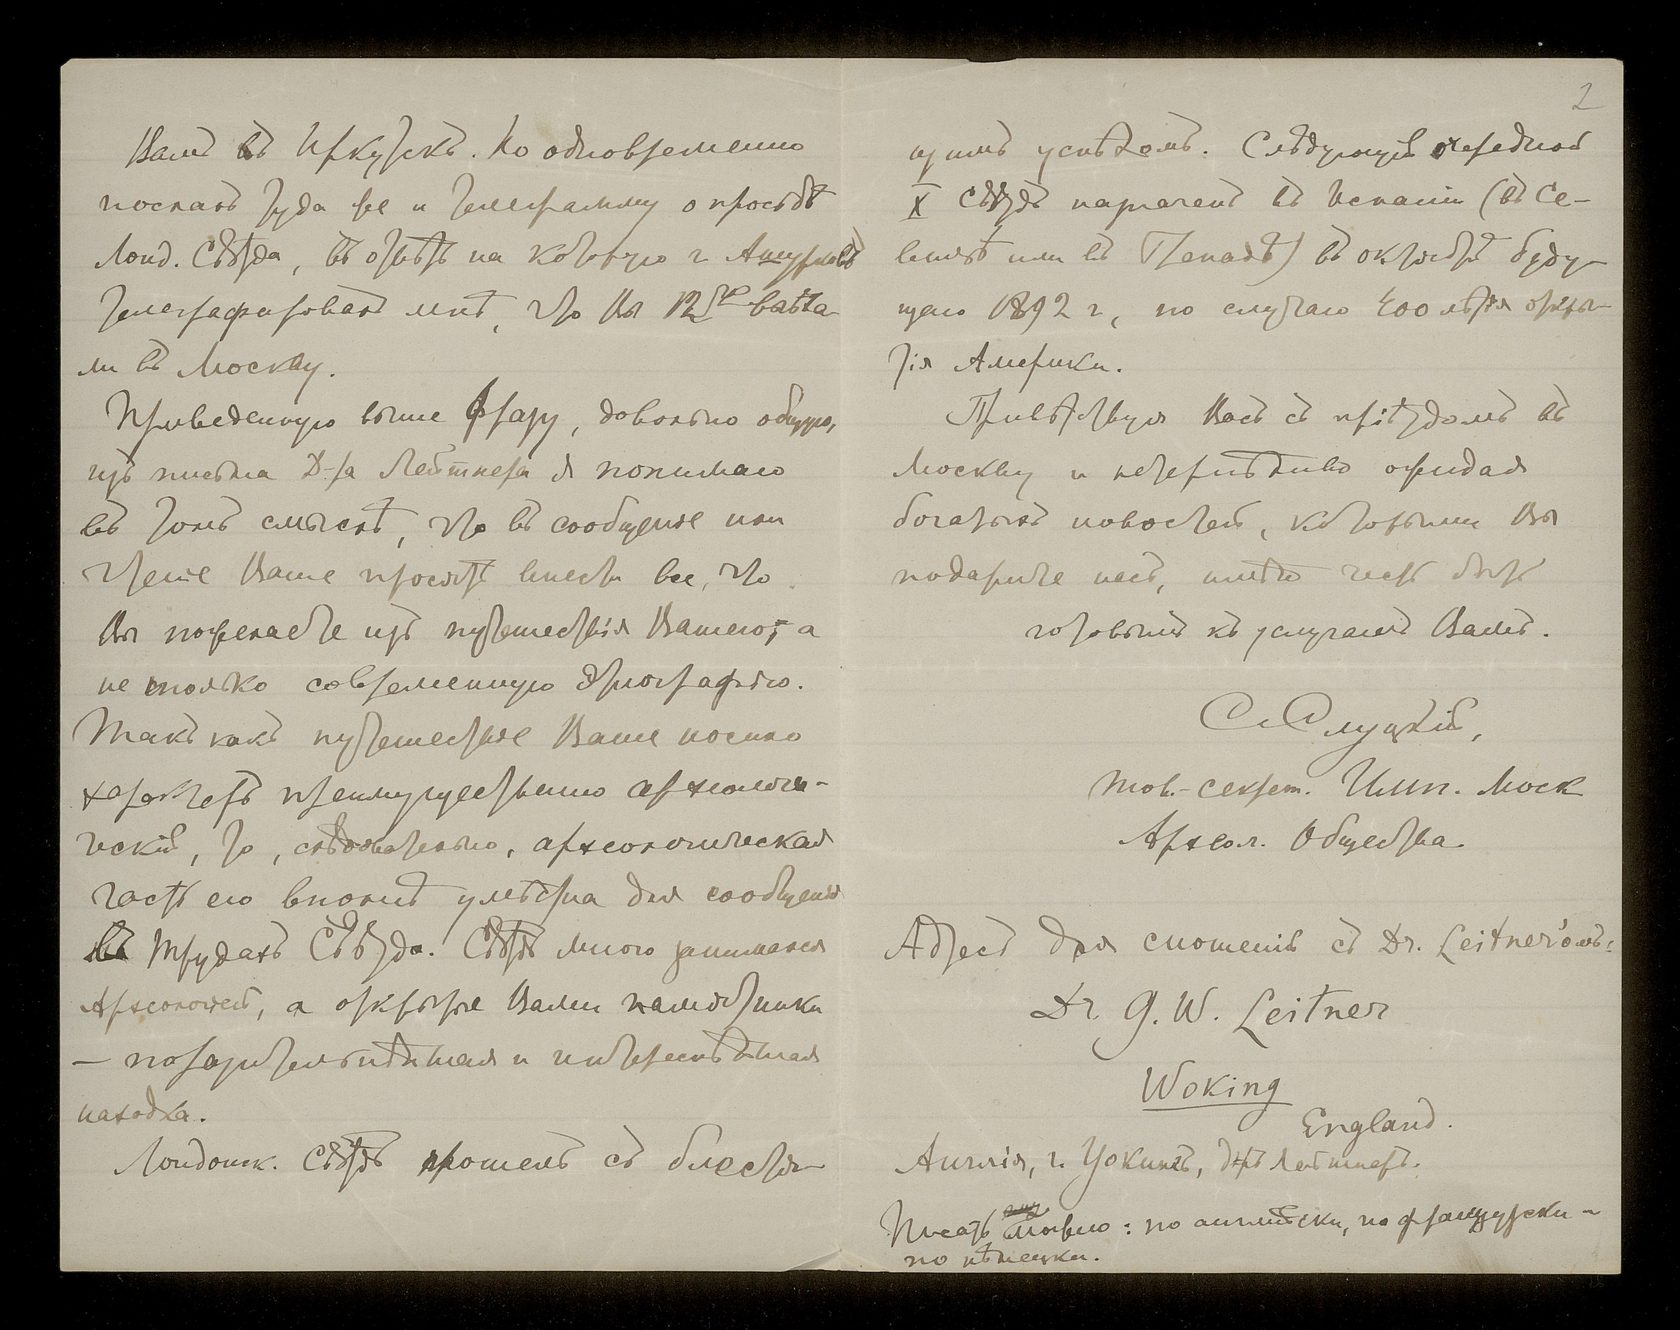 Вамъ въ Иркутскъ. Но одновременно
послалъ туда же и телеграмму о просьбѣ
Лонд. Съѣзда, въ отвѣтъ на которую г.
телеграфировалъ мнѣ, что Вы 12го выѣха-
ли въ Москву.
Приведенную выше фразу, довольно общую,
изъ письма Д-ра Лейтнера я понимаю
въ томъ смыслѣ, что въ сообщеніе или
чтеніе Ваше просятъ внести все, что
Вы пожелаете изъ путешествія Вашего, а
не только современную этнографію.
Такъ какъ путешествіе Ваше носило
характеръ преимущественно археологи-
ческій, то, слѣдовательно, археологическая
часть его вполнѣ умѣстна для сообщенія
въ Трудахъ Съѣзда. Съѣздъ много занимался
Археологіей, а открытые Вами памятники
— поразительнѣйшая и интереснѣйшая
находка.
Лондонск. Съѣздъ прошелъ съ блестя-
2
щимъ успѣхомъ. Слѣдующій очередной
X Съѣздъ назначенъ въ Испаніи (въ Се-
вильѣ или въ Гренадѣ) въ октябрѣ буду-
щаго 1892 г., по случаю 400 лѣтія откры-
тія Америки.
Привѣтствуя Васъ съ пріѣздомъ въ
Москву и нетерпѣливо ожидая
богатыхъ новостей, которыми Вы
подарите насъ, имѣю честь быть
готовымъ къ услугамъ Вамъ.
С. Слуцкій,
тов.-секрет. Импп. Моск
Археол. Общества.
Адресъ для сношеній съ Dr. Leitner'омъ:
Dr. G. W. Leitner
Woking
England.
Англія, г. Уокингъ, д-ръ Лейтнеръ.
Писать можно: по англійски, по французски и
по нѣмецки.